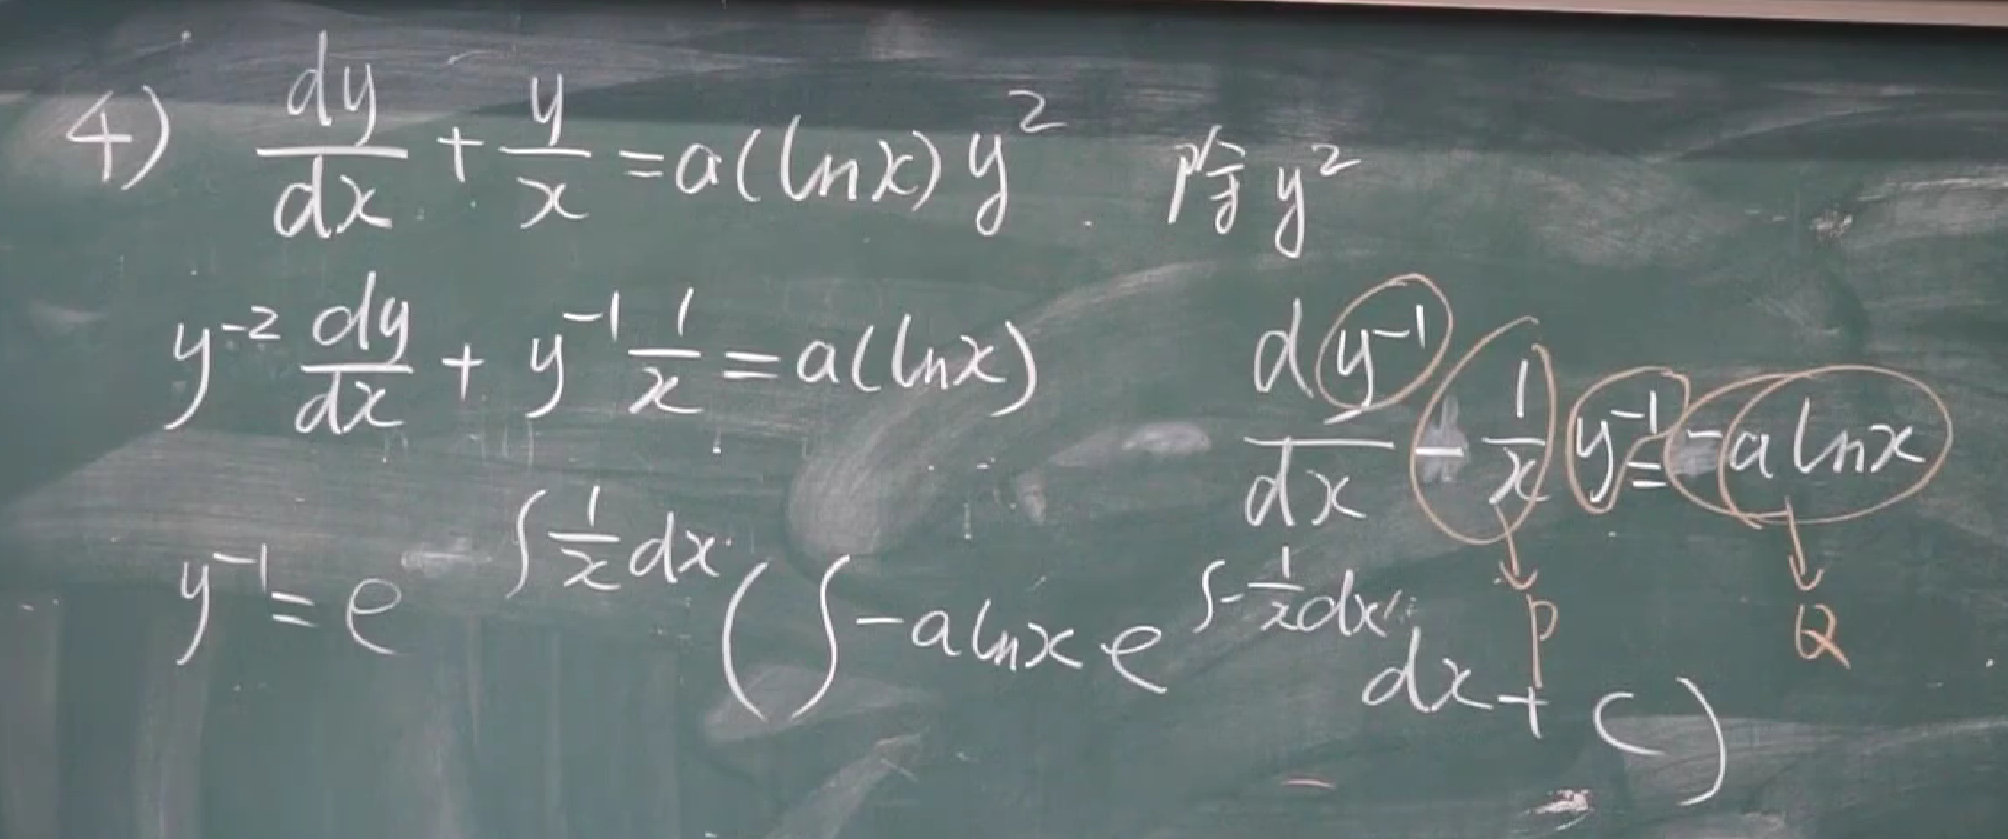 4) dy/dx + y/x = a(lnx)y². 除 y²
y⁻² dy/dx + y⁻¹ 1/x = a(lnx)
dy⁻¹/dx - 1/x y⁻¹ = -alnx
P Q
y⁻¹ = e^{∫ 1/x dx} (∫ -alnx e^{∫ -1/x dx} dx + C)